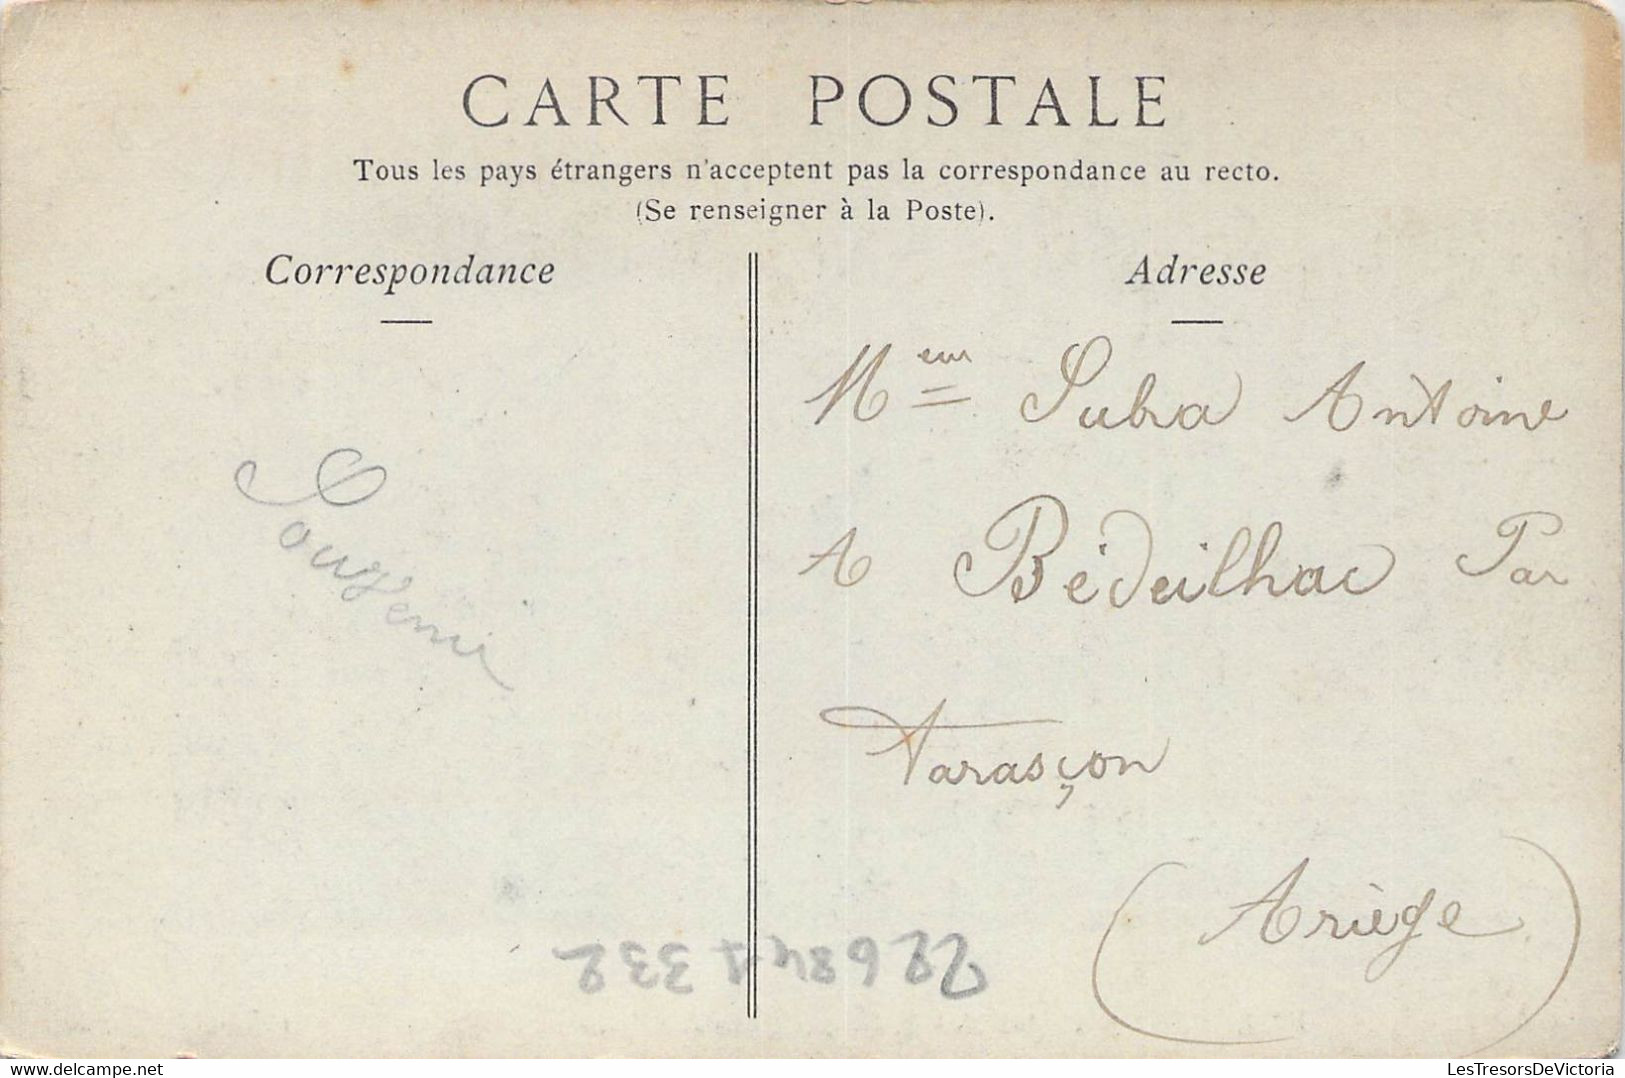 CARTE POSTALE
Tous les pays étrangers n'acceptent pas la correspondance au recto.
(Se renseigner à la Poste).
Correspondance
Adresse
Subra Antoine
A Bédeilhac Par
Tarasçon
(Ariège)
LesTresorsDeVictoria